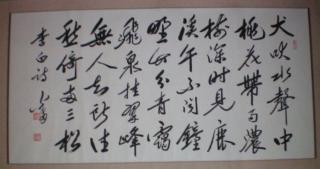 犬吠水聲中
桃花帶雨濃
樹深時見鹿
溪午不聞鐘
野竹分青靄
飛泉挂碧峰
無人知所去
愁倚兩三松
李白詩